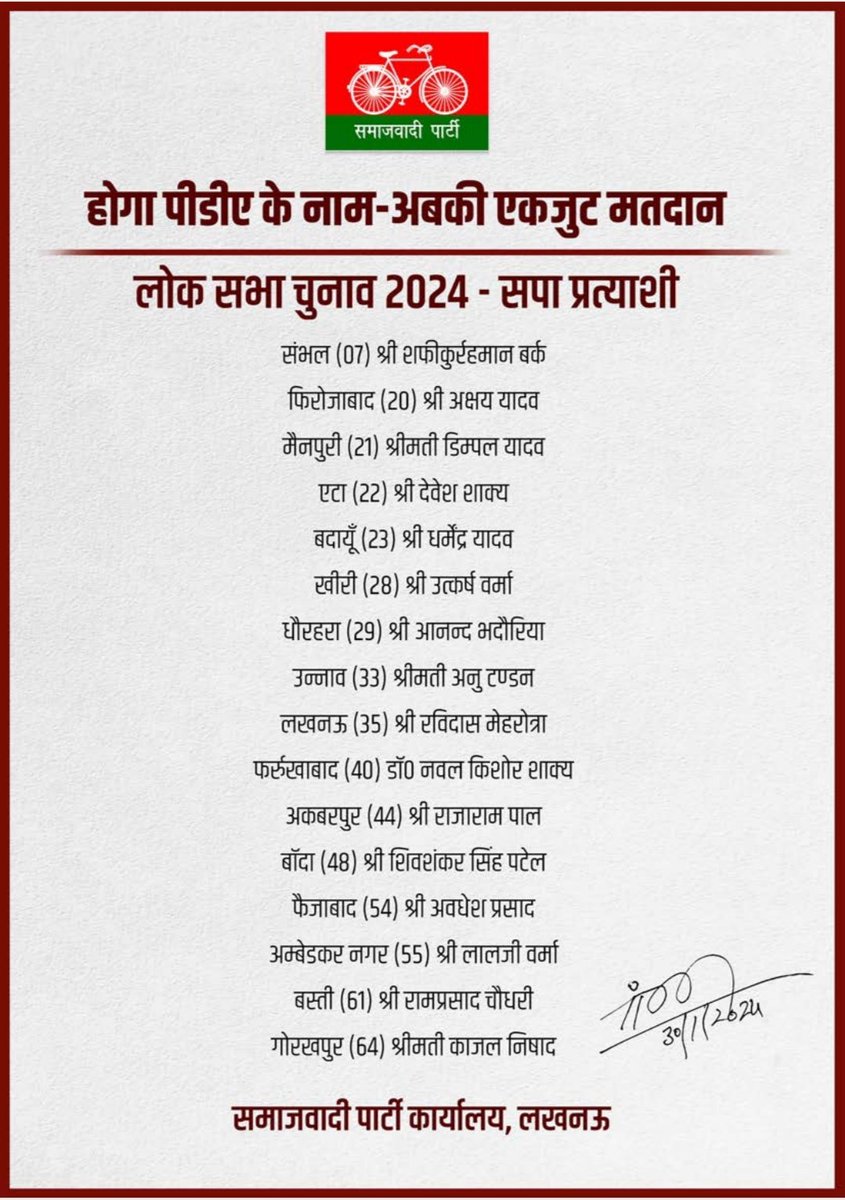 समाजवादी पार्टी
होगा पीडीए के नाम-अबकी एकजुट मतदान
लोक सभा चुनाव 2024 - सपा प्रत्याशी
संभल (07) श्री शफीकुर्रहमान बर्क
फिरोजाबाद (20) श्री अक्षय यादव
मैनपुरी (21) श्रीमती डिम्पल यादव
एटा (22) श्री देवेश शाक्य
बदायूँ (23) श्री धर्मेंद्र यादव
खीरी (28) श्री उत्कर्ष वर्मा
धौरहरा (29) श्री आनन्द भदौरिया
उन्नाव (33) श्रीमती अनु टण्डन
लखनऊ (35) श्री रविदास मेहरोत्रा
फर्रुखाबाद (40) डॉ0 नवल किशोर शाक्य
अकबरपुर (44) श्री राजाराम पाल
बॉदा (48) श्री शिवशंकर सिंह पटेल
फैजाबाद (54) श्री अवधेश प्रसाद
अम्बेडकर नगर (55) श्री लालजी वर्मा
बस्ती (61) श्री रामप्रसाद चौधरी
गोरखपुर (64) श्रीमती काजल निषाद
30/1/2024
समाजवादी पार्टी कार्यालय, लखनऊ